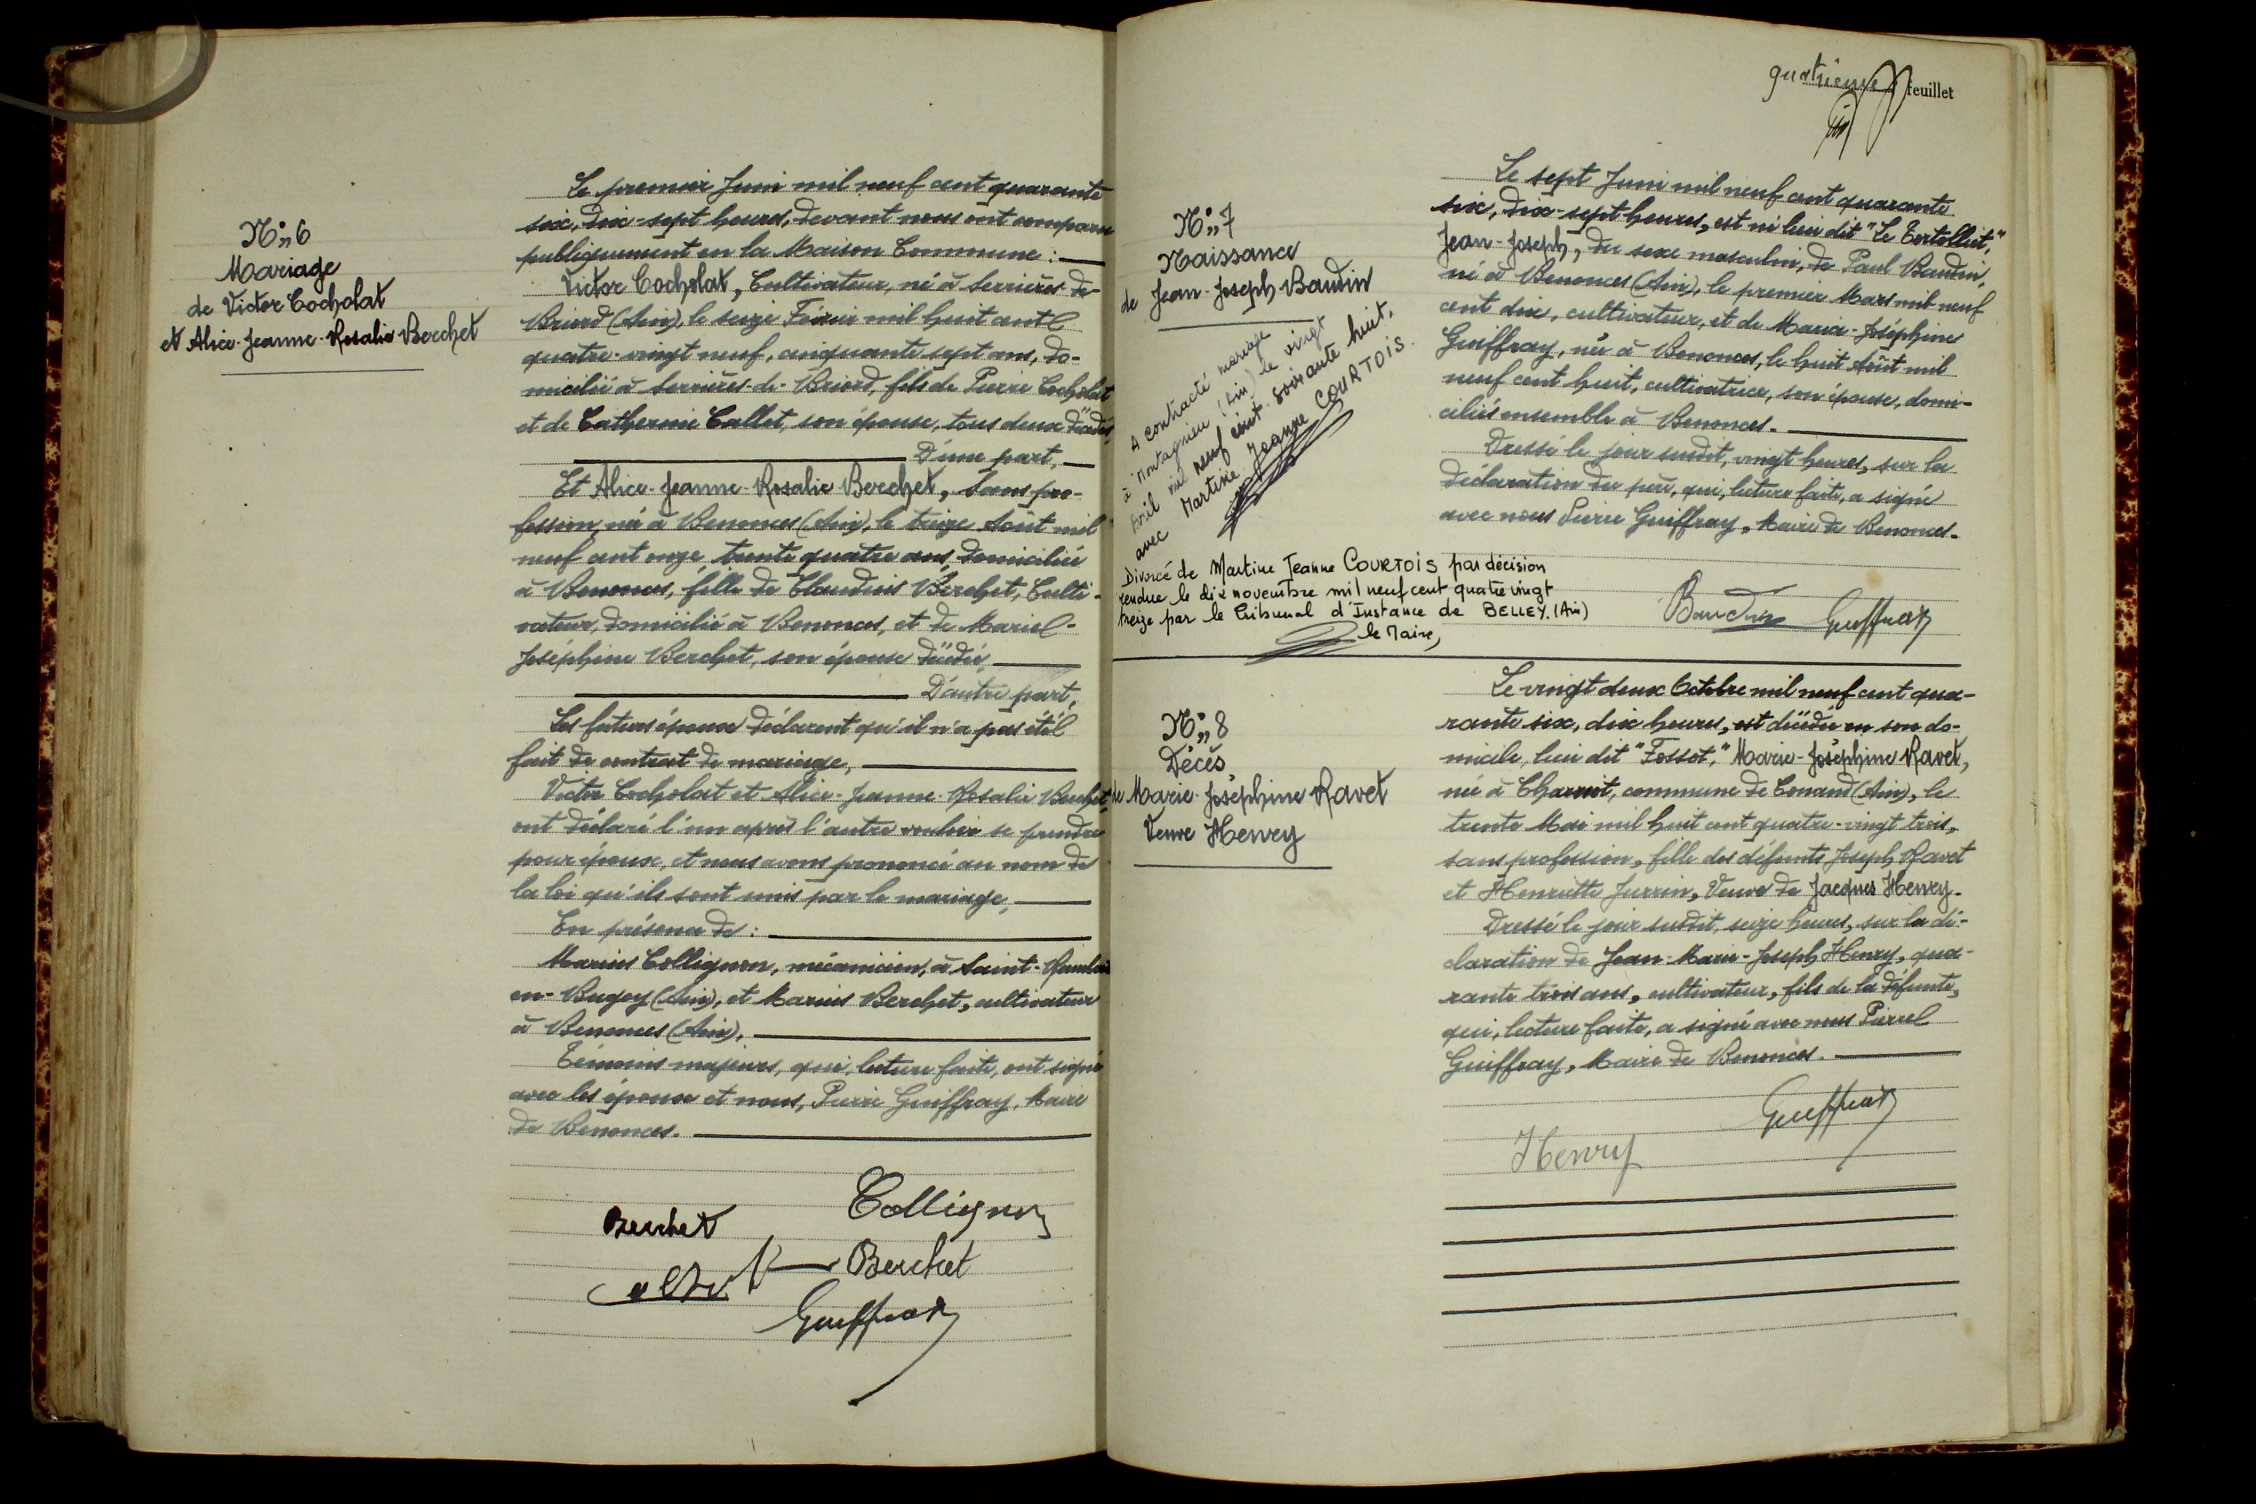 N° 6
Mariage
de Victor Cocholat
et Alice-Jeanne-Rosalie Berchet
Le premier Juin mil neuf cent quarante
six, dix-sept heures, devant nous ont comparu
publiquement en la Maison Commune :
Victor Cocholat, Cultivateur, né à Serrières de
Briord (Ain), le seize Février mil huit cent
quatre-vingt neuf, cinquante sept ans, do-
micilié à Serrières-de-Briord, fils de Pierre Cocholat
et de Catherine Callet, son épouse, tous deux décédés,
D'une part,
Et Alice-Jeanne-Rosalie Berchet, Sans pro-
fession, née à Benonces (Ain), le treize Août mil
neuf cent onze, trente quatre ans, domiciliée
à Benonces, fille de Claudius Berchet, Culti-
vateur, domicilié à Benonces, et de Marie
Joséphine Berchet, son épouse décédée,
D'autre part,
Les futurs époux déclarent qu'il n'a pas été
fait de contrat de mariage,
Victor Cocholat et Alice-Jeanne-Rosalie Berchet,
ont déclaré l'un après l'autre vouloir se prendre
pour époux, et nous avons prononcé au nom de
la loi qu'ils sont unis par le mariage,
En présence de :
Marius Collignon, mécanicien, à Saint-Rambert
en-Bugey (Ain), et Marius Berchet, cultivateur
à Benonces (Ain),
Témoins majeurs, qui, lecture faite, ont signé
avec les époux et nous, Pierre Guiffray, Maire
de Benonces.
Berchet
Collignon
Berchet
Guiffray
quatrième feuillet
N° 7
Naissance
de Jean-Joseph Baudin
A contracté mariage
à Montagnieu (Ain) le vingt
Avril mil neuf cent soixante huit,
avec Martine Jeanne COURTOIS.
Divorcé de Martine Jeanne COURTOIS par décision
rendue le dix novembre mil neuf cent quatre vingt
treize par le Tribunal d'Instance de BELLEY. (Ain)
le Maire,
Le sept Juin mil neuf cent quarante
six, dix-sept heures, est né lieu dit "Le Tortollict,"
Jean-Joseph, du sexe masculin, de Paul Baudin,
né à Benonces (Ain), le premier Mars mil neuf
cent dix, cultivateur, et de Maria-Joséphine
Guiffray, née à Benonces, le huit Août mil
neuf cent huit, cultivatrice, son épouse, domi-
ciliés ensemble à Benonces.
Dressé le jour susdit, vingt heures, sur la
déclaration du père, qui, lecture faite, a signé
avec nous Pierre Guiffray, Maire de Benonces.
Baudin Guiffray
N° 8
Décès
de Marie-Joséphine Ravet
Veuve Henry
Le vingt deux Octobre mil neuf cent qua-
rante six, dix heures, est décédée en son do-
micile, lieu dit "Fossot," Marie-Joséphine Ravet,
née à Charvnit, commune de Conand (Ain), le
trente Mai mil huit cent quatre-vingt trois,
sans profession, fille des défunts Joseph Ravet
et Henriette Jurrin, Veuve de Jacques Henry.
Dressé le jour susdit, seize heures, sur la dé-
claration de Jean-Marie-Joseph Henry, qua-
rante trois ans, cultivateur, fils de la défunte,
qui, lecture faite, a signé avec nous Pierre
Guiffray, Maire de Benonces.
Guiffray
Henry